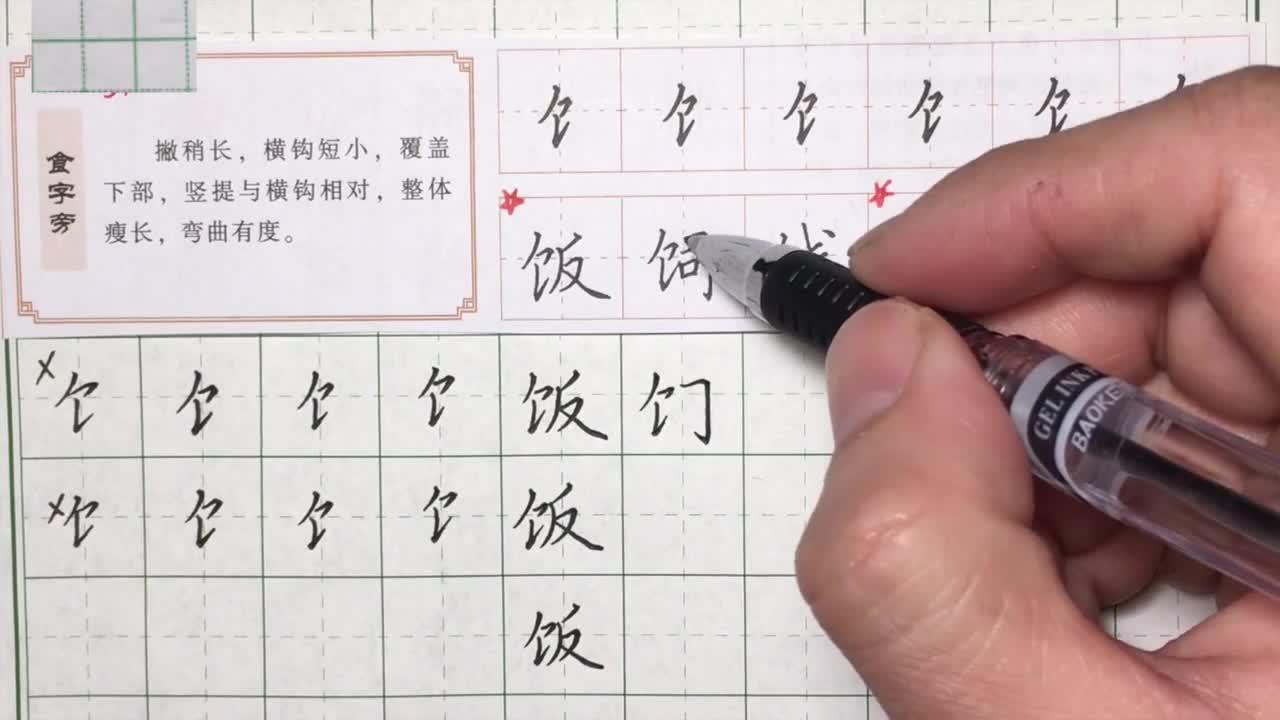 食字旁
撇稍长，横钩短小，覆盖
下部，竖提与横钩相对，整体
瘦长，弯曲有度。
饣 饣 饣 饣 饣
饭 饲
× 饣 饣 饣 饣 饭
× 饣 饣 饣 饣 饭
饭
GEL INK
BAOKE